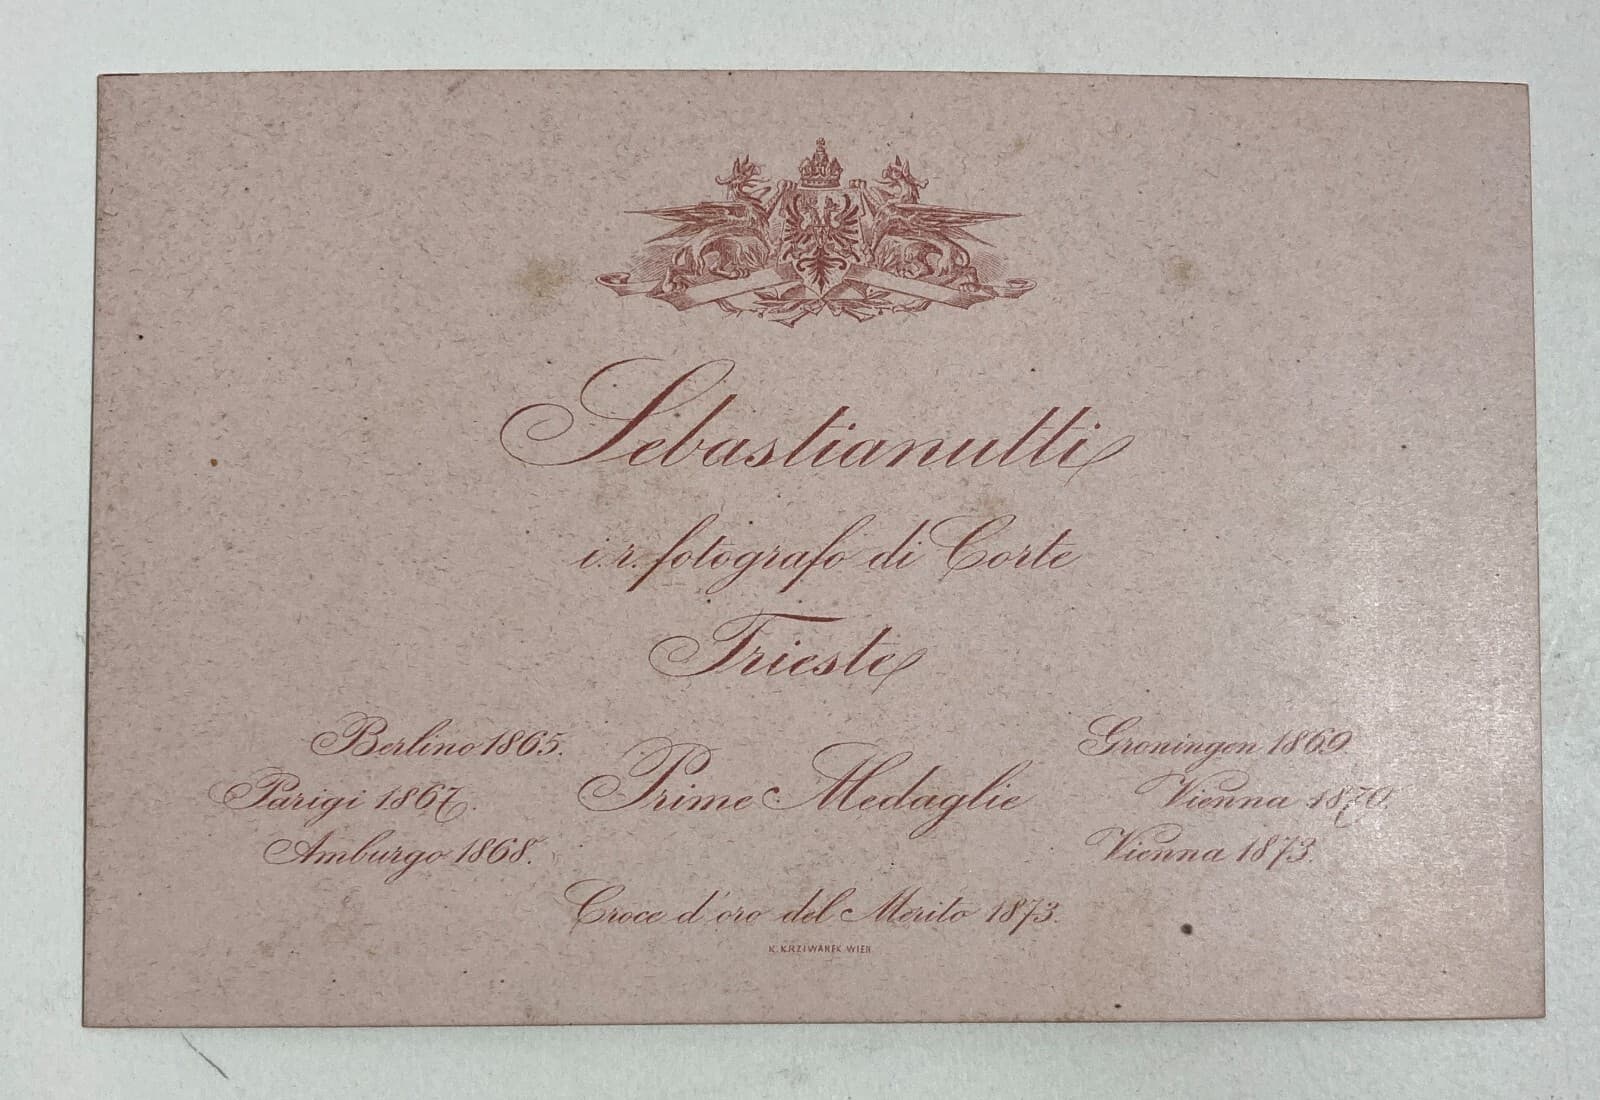 Sebastianutti
i. r. fotografo di Corte
Trieste
Berlino 1865.
Parigi 1867.
Amburgo 1868.
Prime Medaglie
Groningen 1869.
Vienna 1870.
Vienna 1873.
Croce d'oro del Merito 1873.
K. KRZIWANEK WIEN